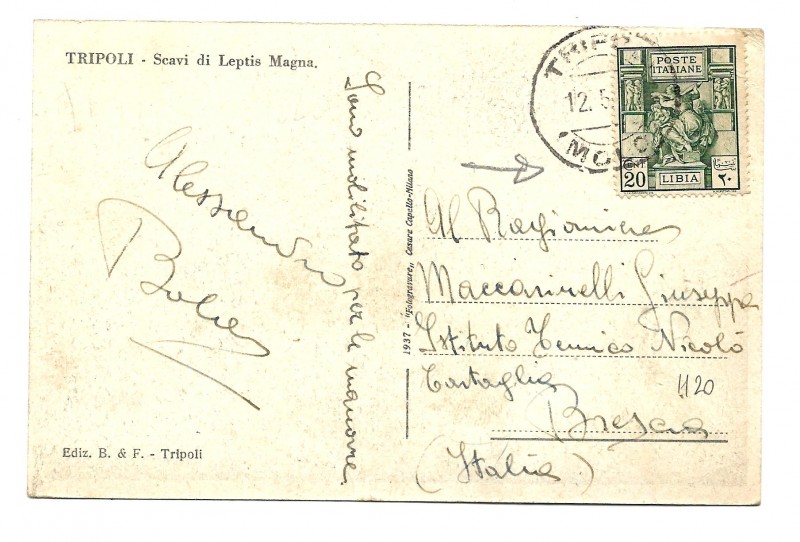 TRIPOLI - Scavi di Leptis Magna.
Alessandro
Sono mobilitato per le manovre
Ediz. B. & F. - Tripoli
1937 - "Fotogravure,, Cesare Capello-Milano
12.5
POSTE
ITALIANE
CENT
20
LIBIA
٢٠
Al Ragioniere
Maccarinelli Giuseppe
Istituto Tecnico Nicolò
Tartaglia
1120
Brescia
(Italia)